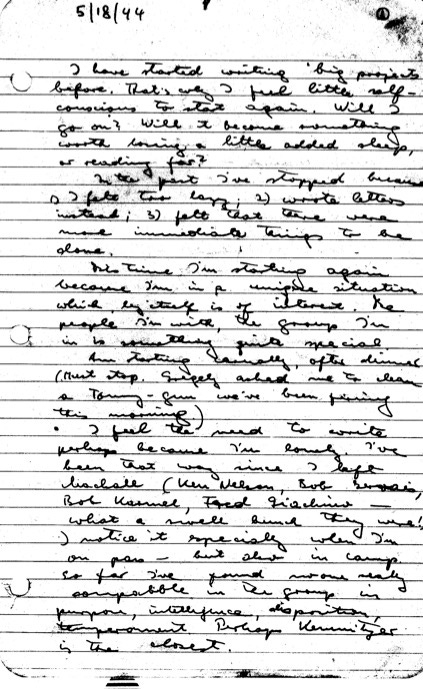 5/18/44
I have started writing 'big projects
before. That's why I feel little self-
conscious to start again. Will I
go on? Will it become something
worth losing a little added sleep,
or reading for?
In the past I've stopped because
1) I felt too lazy; 2) wrote letters
instead; 3) felt that there were
more immediate things to be
done.
This time I'm starting again
because I'm in a unique situation
which, by itself is of interest. The
people I'm with, the group I'm
in is something quite special.
Am starting casually, after dinner
(Must stop. Gregely asked me to clean
a Tommy-gun we've been firing
this morning.)
I feel the need to write
perhaps because I'm lonely. I've
been that way since I left
(Ken Nelson, Bob
Bob Karmel,
what a swell bunch they were!
I notice it especially when I'm
on pass — but also in camp
so far I've found no one really
compatible in the group in
purpose, intelligence, disposition,
temperament Perhaps Kemnitzer
is the closest.